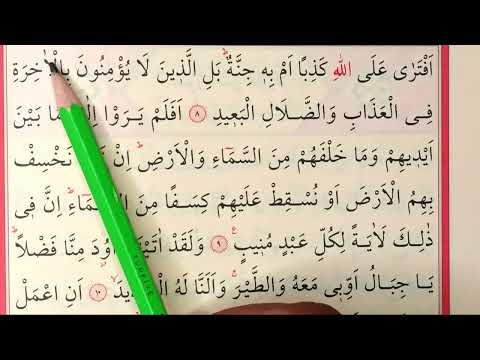 اَفْتَرٰى عَلَى اللّٰهِ كَذِبًا اَمْ بِهٖ جِنَّةٌۜ بَلِ الَّذٖينَ لَا يُؤْمِنُونَ بِالْاٰخِرَةِ
فِى الْعَذَابِ وَالضَّلَالِ الْبَعٖيدِ ٨ اَفَلَمْ يَرَوْا بَيْنَ
اَيْدٖيهِمْ وَمَا خَلْفَهُمْ مِنَ السَّمَٓاءِ وَالْاَرْضِۜ اِنْ نَخْسِفْ
بِهِمُ الْاَرْضَ اَوْ نُسْقِطْ عَلَيْهِمْ كِسَفًا مِنَ اِنَّ فٖى
ذٰلِكَ لَاٰيَةً لِكُلِّ عَبْدٍ مُنٖيبٍ ٩ وَلَقَدْ اٰتَيْنَا مِنَّا فَضْلًاۜ
يَا جِبَالُ اَوِّبٖى مَعَهُ وَالطَّيْرَۚ وَاَلَنَّا لَهُ ١٠ اَنِ اعْمَلْ